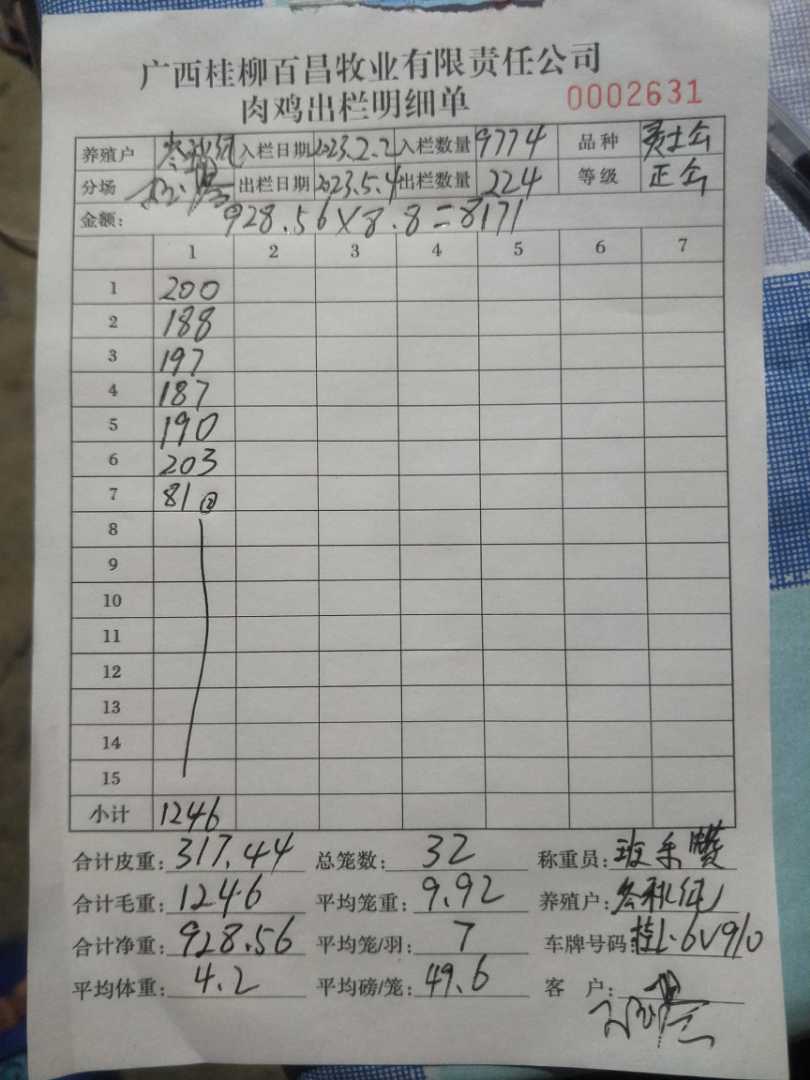 广西桂柳百昌牧业有限责任公司
肉鸡出栏明细单 0002631
养殖户 入栏日期 2023.2.2 入栏数量 9774 品种
分场 出栏日期 2023.5.4 出栏数量 224 等级 正公
金额: 928.56×8.8=8171
1 2 3 4 5 6 7
1 200
2 188
3 197
4 187
5 190
6 203
7 81 ②
8
9
10
11
12
13
14
15
小计 1246
合计皮重: 317.44 总笼数: 32 称重员:
合计毛重: 1246 平均笼重: 9.92 养殖户:
合计净重: 928.56 平均笼/羽: 7 车牌号码: 桂L·6V910
平均体重: 4.2 平均磅/笼: 49.6 客 户: